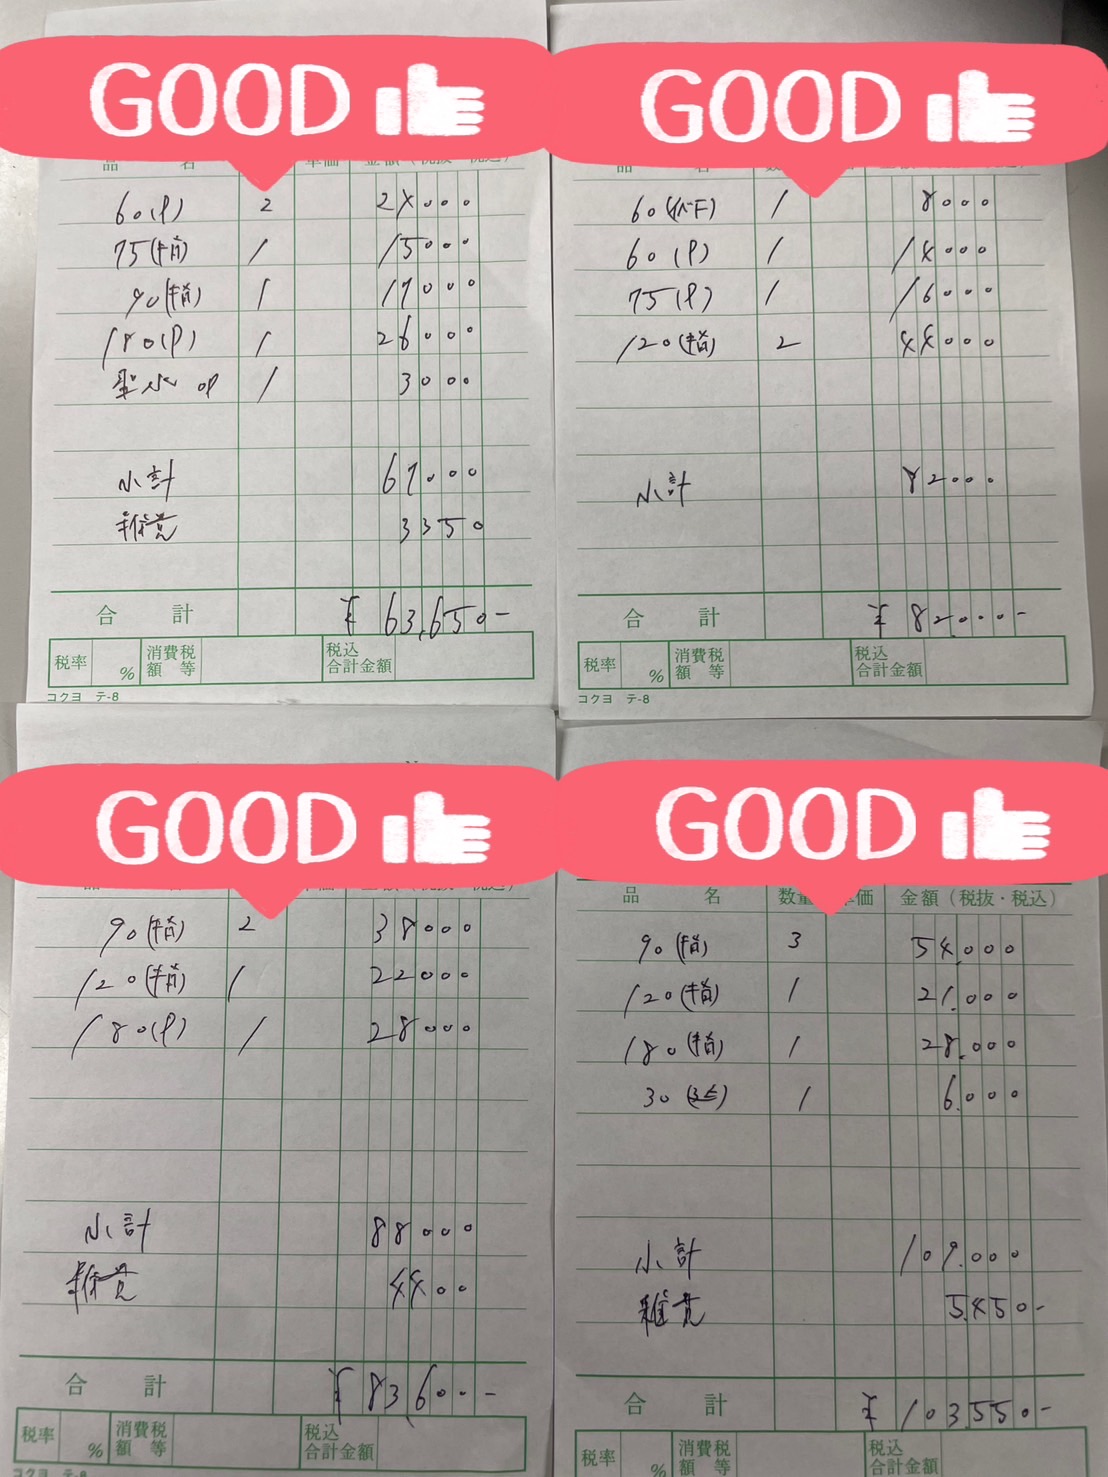 GOOD
品 名 単価 金額(税抜・税込)
60(P) 2 24000
75(指) 1 15000
90(指) 1 17000
180(P) 1 26000
聖水 OP 1 3000
小計 67000
雑費 3350
合 計 ¥63,650-
税率 % 消費税額等 税込合計金額
コクヨ テ-8
GOOD
品 名
60(イベート) 1 8000
60(P) 1 14000
75(P) 1 16000
120(指) 2 44000
小計 82000
合 計 ¥82,000-
税率 % 消費税額等 税込合計金額
コクヨ テ-8
GOOD
90(指) 2 38000
120(指) 1 22000
180(P) 1 28000
小計 88000
雑費 4400
合 計 ¥83,600-
税率 % 消費税額等 税込合計金額
コクヨ テ-8
GOOD
品 名 数量 単価 金額(税抜・税込)
90(指) 3 54,000
120(指) 1 21,000
180(指) 1 28,000
30 1 6,000
小計 109,000
雑費 5,450-
合 計 ¥103,550-
税率 % 消費税額等 税込合計金額